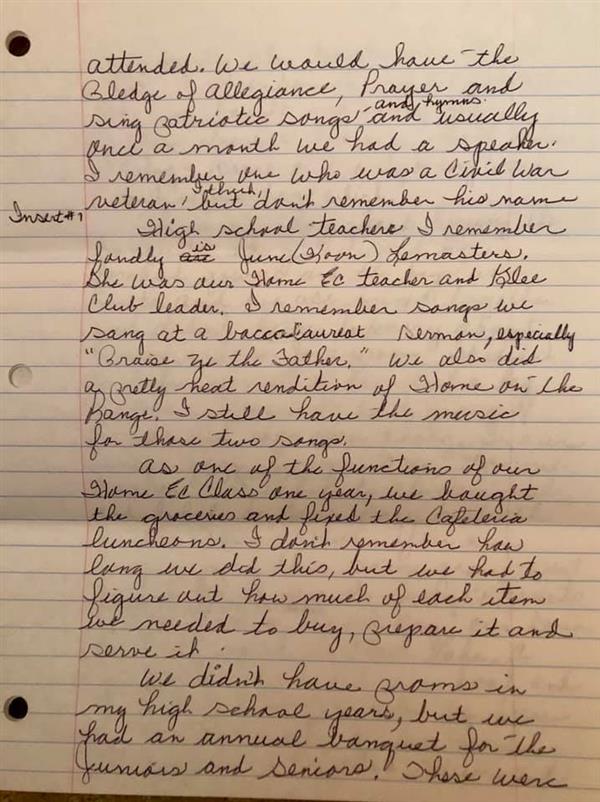 attended. We would have the
Pledge of Allegiance, Prayer and
sing patriotic songs and hymns. and usually
once a month we had a speaker.
I remember one who was a Civil War
veteran, I think, but don't remember his name
Insert #1
High school teachers I remember
fondly is June (Koon) Lemasters.
She was our Home Ec teacher and Glee
Club leader. I remember songs we
sang at a baccalaureat sermon, especially
"Praise Ye the Father." We also did
a pretty neat rendition of Home on the
Range. I still have the music
for those two songs.
As one of the functions of our
Home Ec Class one year, we bought
the groceries and fixed the Cafeteria
luncheons. I don't remember how
long we did this, but we had to
figure out how much of each item
we needed to buy, prepare it and
serve it.
We didn't have proms in
my high school years, but we
had an annual banquet for the
Juniors and Seniors. These were